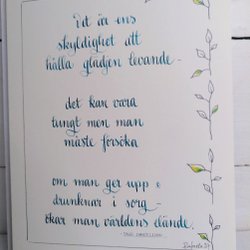 det är ens
skyldighet att
hålla glädjen levande -
det kan vara
tungt men man
måste försöka
om man ger upp o
drunknar i sorg -
ökar man världens elände.